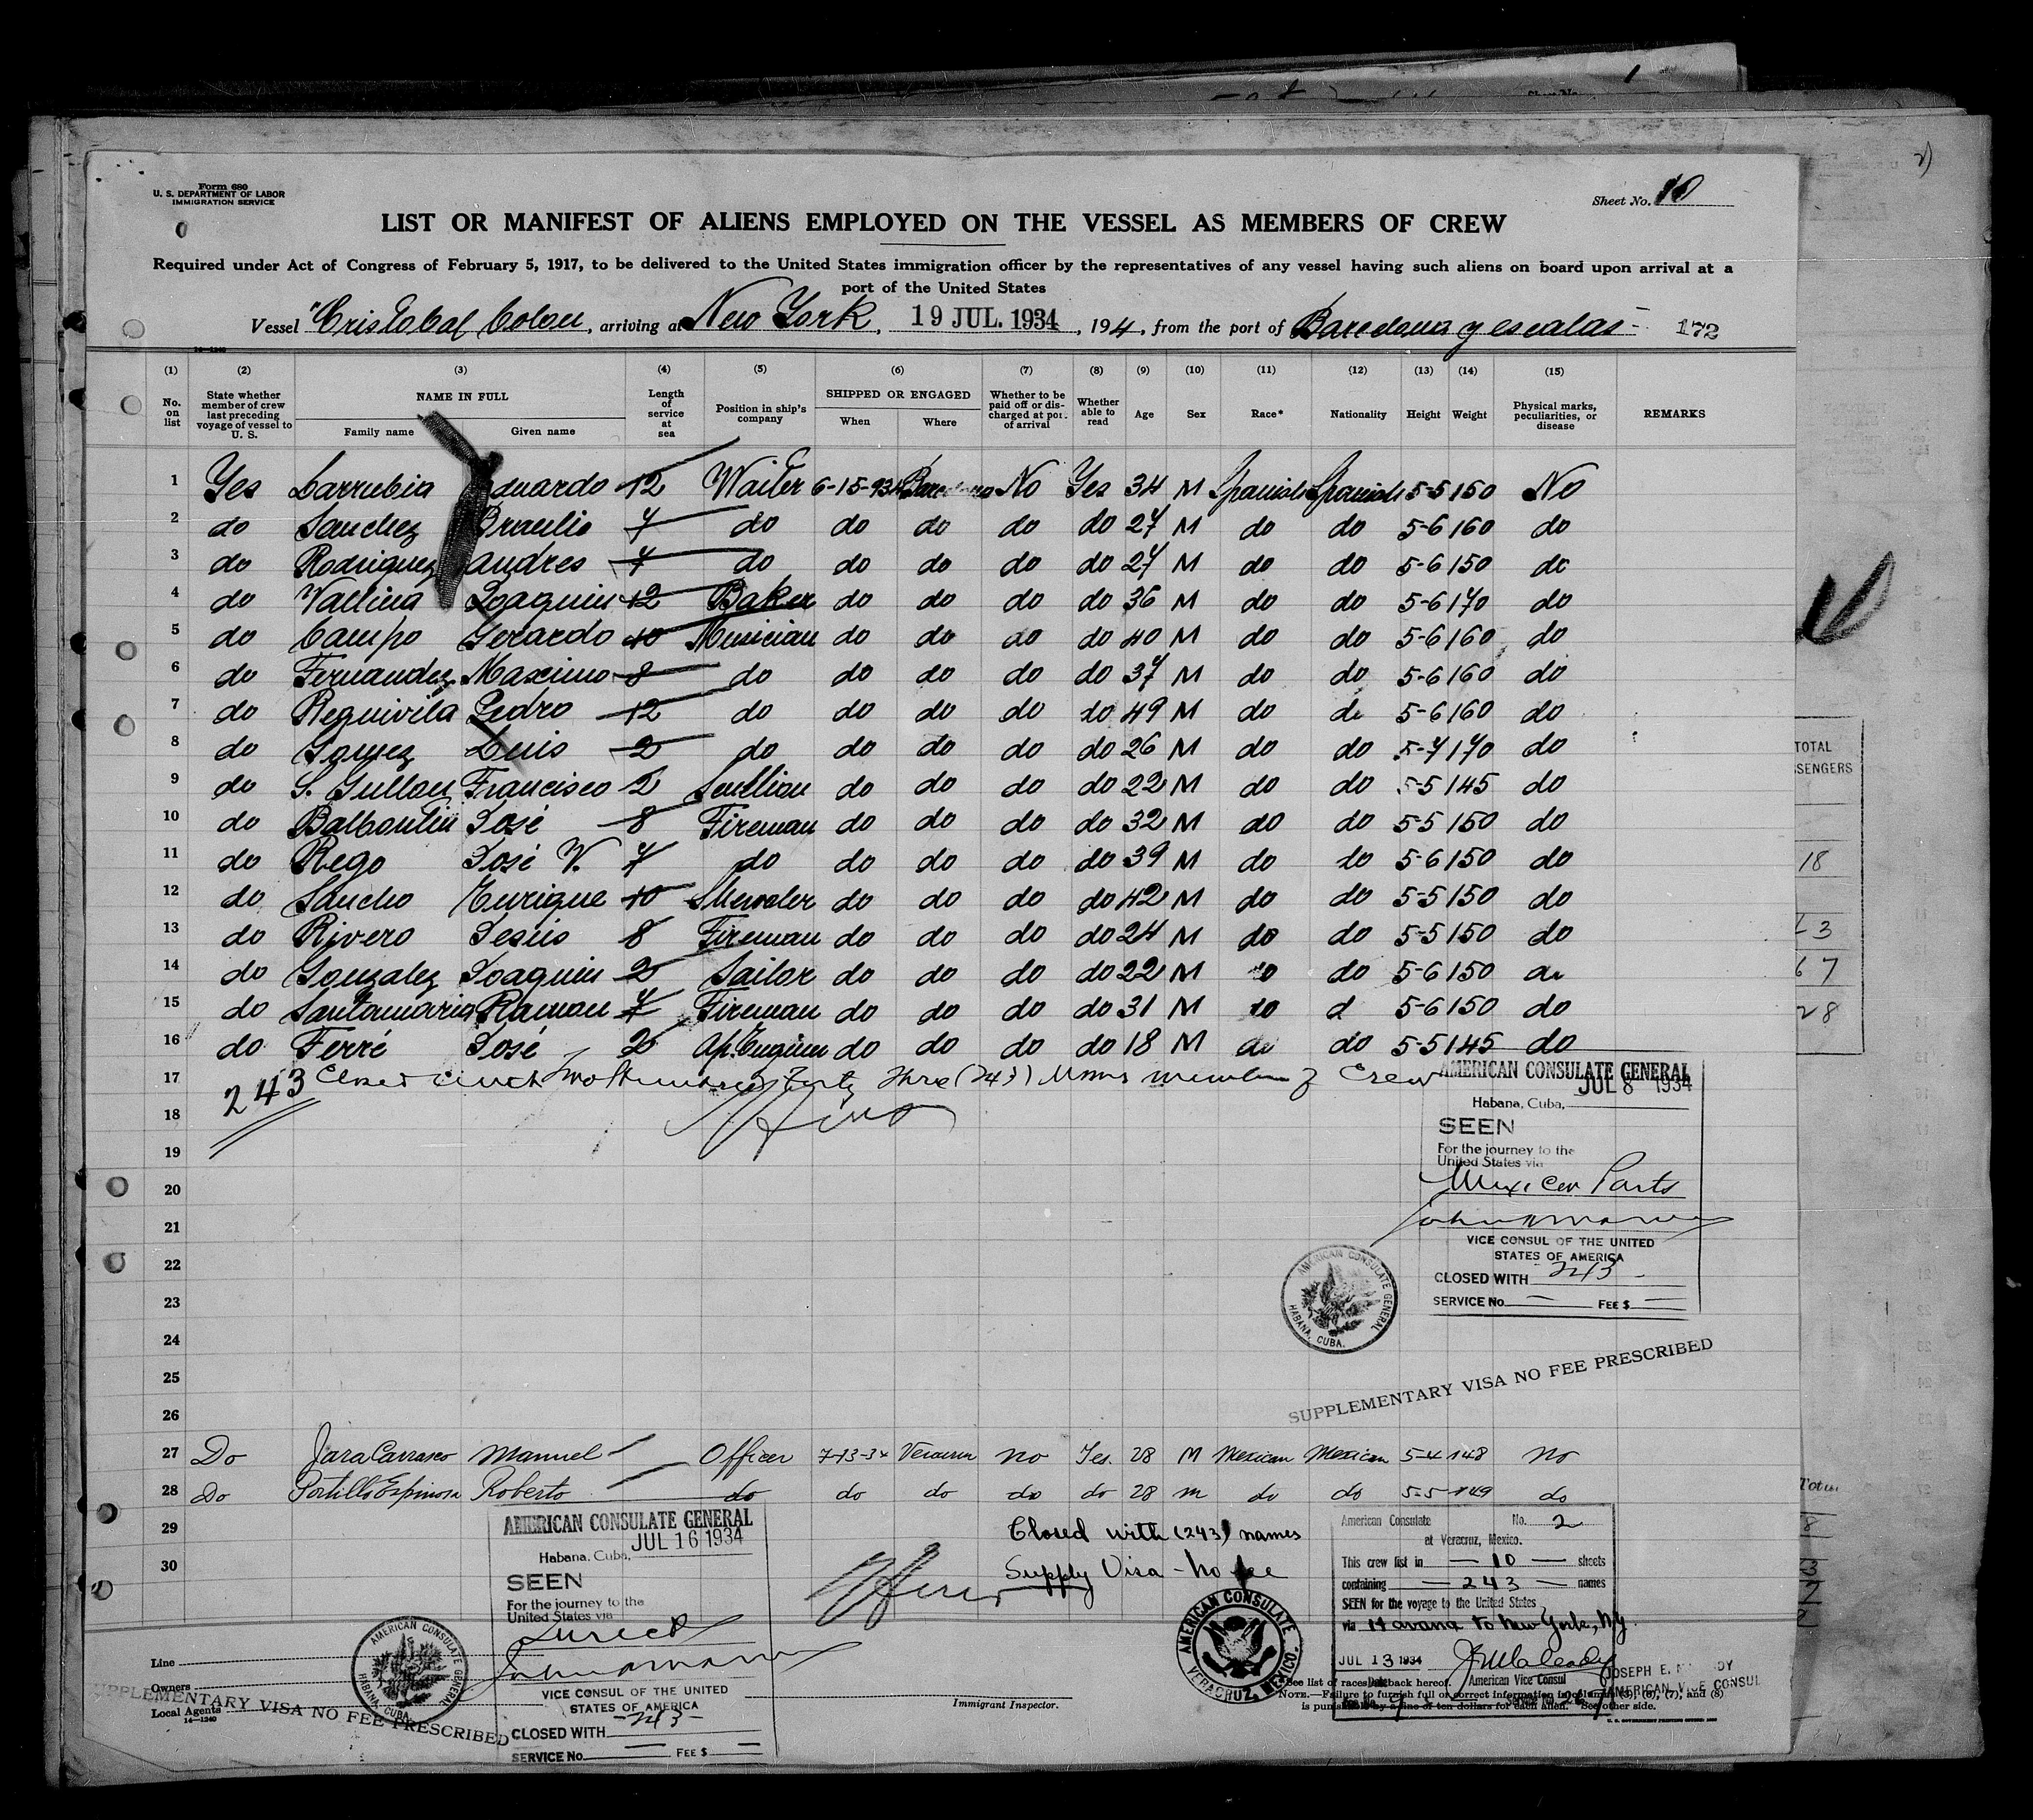 Form 680
U. S. DEPARTMENT OF LABOR
IMMIGRATION SERVICE
Sheet No. 10
LIST OR MANIFEST OF ALIENS EMPLOYED ON THE VESSEL AS MEMBERS OF CREW
Required under Act of Congress of February 5, 1917, to be delivered to the United States immigration officer by the representatives of any vessel having such aliens on board upon arrival at a
port of the United States
Vessel "Cristobal Colon, arriving at New York, 19 JUL. 1934, 194, from the port of Barcelona y escalas - 172
14—1240
(1) (2) (3) (4) (5) (6) (7) (8) (9) (10) (11) (12) (13) (14) (15)
No. on list State whether member of crew last preceding voyage of vessel to U. S. NAME IN FULL Family name Given name Length of service at sea Position in ship's company SHIPPED OR ENGAGED When Where Whether to be paid off or discharged at port of arrival Whether able to read Age Sex Race* Nationality Height Weight Physical marks, peculiarities, or disease REMARKS
1 Yes Larrubia Eduardo 12 Waiter 6-15-934 Barcelona No Yes 34 M Spanish Spanish 5-5 150 No
2 do Sanchez Braulio 7 do do do do do 27 M do do 5-6 160 do
3 do Rodriguez Andres 7 do do do do do 27 M do do 5-6 150 do
4 do Vallina Joaquin 12 Baker do do do do 36 M do do 5-6 170 do
5 do Campo Gerardo 10 Musician do do do do 40 M do do 5-6 160 do
6 do Fernandez Maximo 8 do do do do do 37 M do do 5-6 160 do
7 do Requivila Pedro 12 do do do do do 49 M do do 5-6 160 do
8 do Gomez Luis 2 do do do do do 26 M do do 5-7 170 do
9 do S. Gullon Francisco 2 Scullion do do do do 22 M do do 5-5 145 do
10 do Balbontin José 8 Fireman do do do do 32 M do do 5-5 150 do
11 do Rego José V. 7 do do do do do 39 M do do 5-6 150 do
12 do Sancho Enrique 10 do do do do 42 M do do 5-5 150 do
13 do Rivero Jesús 8 Fireman do do do do 24 M do do 5-5 150 do
14 do Gonzalez Joaquin 2 Sailor do do do do 22 M do do 5-6 150 do
15 do Santamaria Ramon 7 Fireman do do do do 31 M do d 5-6 150 do
16 do Ferré José 2 Ap. Engineer do do do do 18 M do do 5-5 145 do
17 243 Closed Two Hundred Forty Three (243) members of Crew
18
19
20
21
22
23
24
25
26
AMERICAN CONSULATE GENERAL
JUL 8 1934
Habana, Cuba,
SEEN
For the journey to the
United States via
Mexican Ports
VICE CONSUL OF THE UNITED
STATES OF AMERICA
CLOSED WITH 243 -
SERVICE No. — FEE $ —
AMERICAN CONSULATE GENERAL HABANA, CUBA.
SUPPLEMENTARY VISA NO FEE PRESCRIBED
27 Do Jara Carrasco Manuel Officer 7-13-34 Veracruz no Yes 28 M Mexican Mexican 5-4 148 no
28 Do Portillo Espinosa Roberto do do do do do 28 m do do 5-5 149 do
29
30
AMERICAN CONSULATE GENERAL
JUL 16 1934
Habana, Cuba,
SEEN
For the journey to the
United States via
Direct
VICE CONSUL OF THE UNITED
STATES OF AMERICA
CLOSED WITH -243-
SERVICE No. — FEE $ —
AMERICAN CONSULATE GENERAL HABANA, CUBA.
SUPPLEMENTARY VISA NO FEE PRESCRIBED
Closed with (243) names
Supply Visa - No fee
AMERICAN CONSULATE VERACRUZ, MEXICO.
American Consulate No. 2
at Veracruz, Mexico.
This crew list in — 10 — sheets
containing — 243 — names
SEEN for the voyage to the United States
via Havana to New York, N.Y.
JUL 13 1934
American Vice Consul
AMERICAN VICE CONSUL
Line
Owners
Local Agents
14—1240
Immigrant Inspector.
See list of races on back hereof.
NOTE.—Failure to furnish full or correct information in columns (3), (5), (7), and (8)
is punishable by a fine of ten dollars for each alien. See other side.
TOTAL
SSENGERS
18
3
67
28
Total